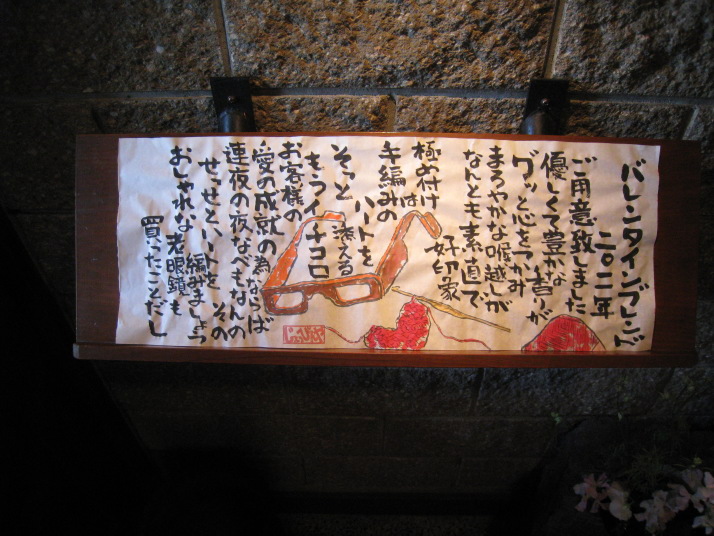 バレンタインブレンド
二〇一一年
ご用意致しました
優しくて豊かな香りが
グッと心をつかみ
まろやかな喉越しが
なんとも素直で
好印象
極め付けは
手編みの
ハートを
そっと添える
もうイチコロ
お客様の
愛の成就の為ならば
連夜の夜なべもなんの
その
せっせとハートを
編みましょう
おしゃれな老眼鏡も
買ったことだし